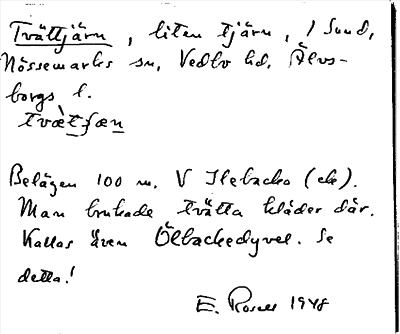 Tvättjärn, liten tjärn, i Sund,
Nössemarks sn, Vedbo hd, Älvs-
borgs l.
tvæ̀t-fæn
Belägen 100 m. V Ilebacka (ek).
Man brukade tvätta kläder där.
Kallas även Ölbackedyvel. Se
detta!
E. 1948